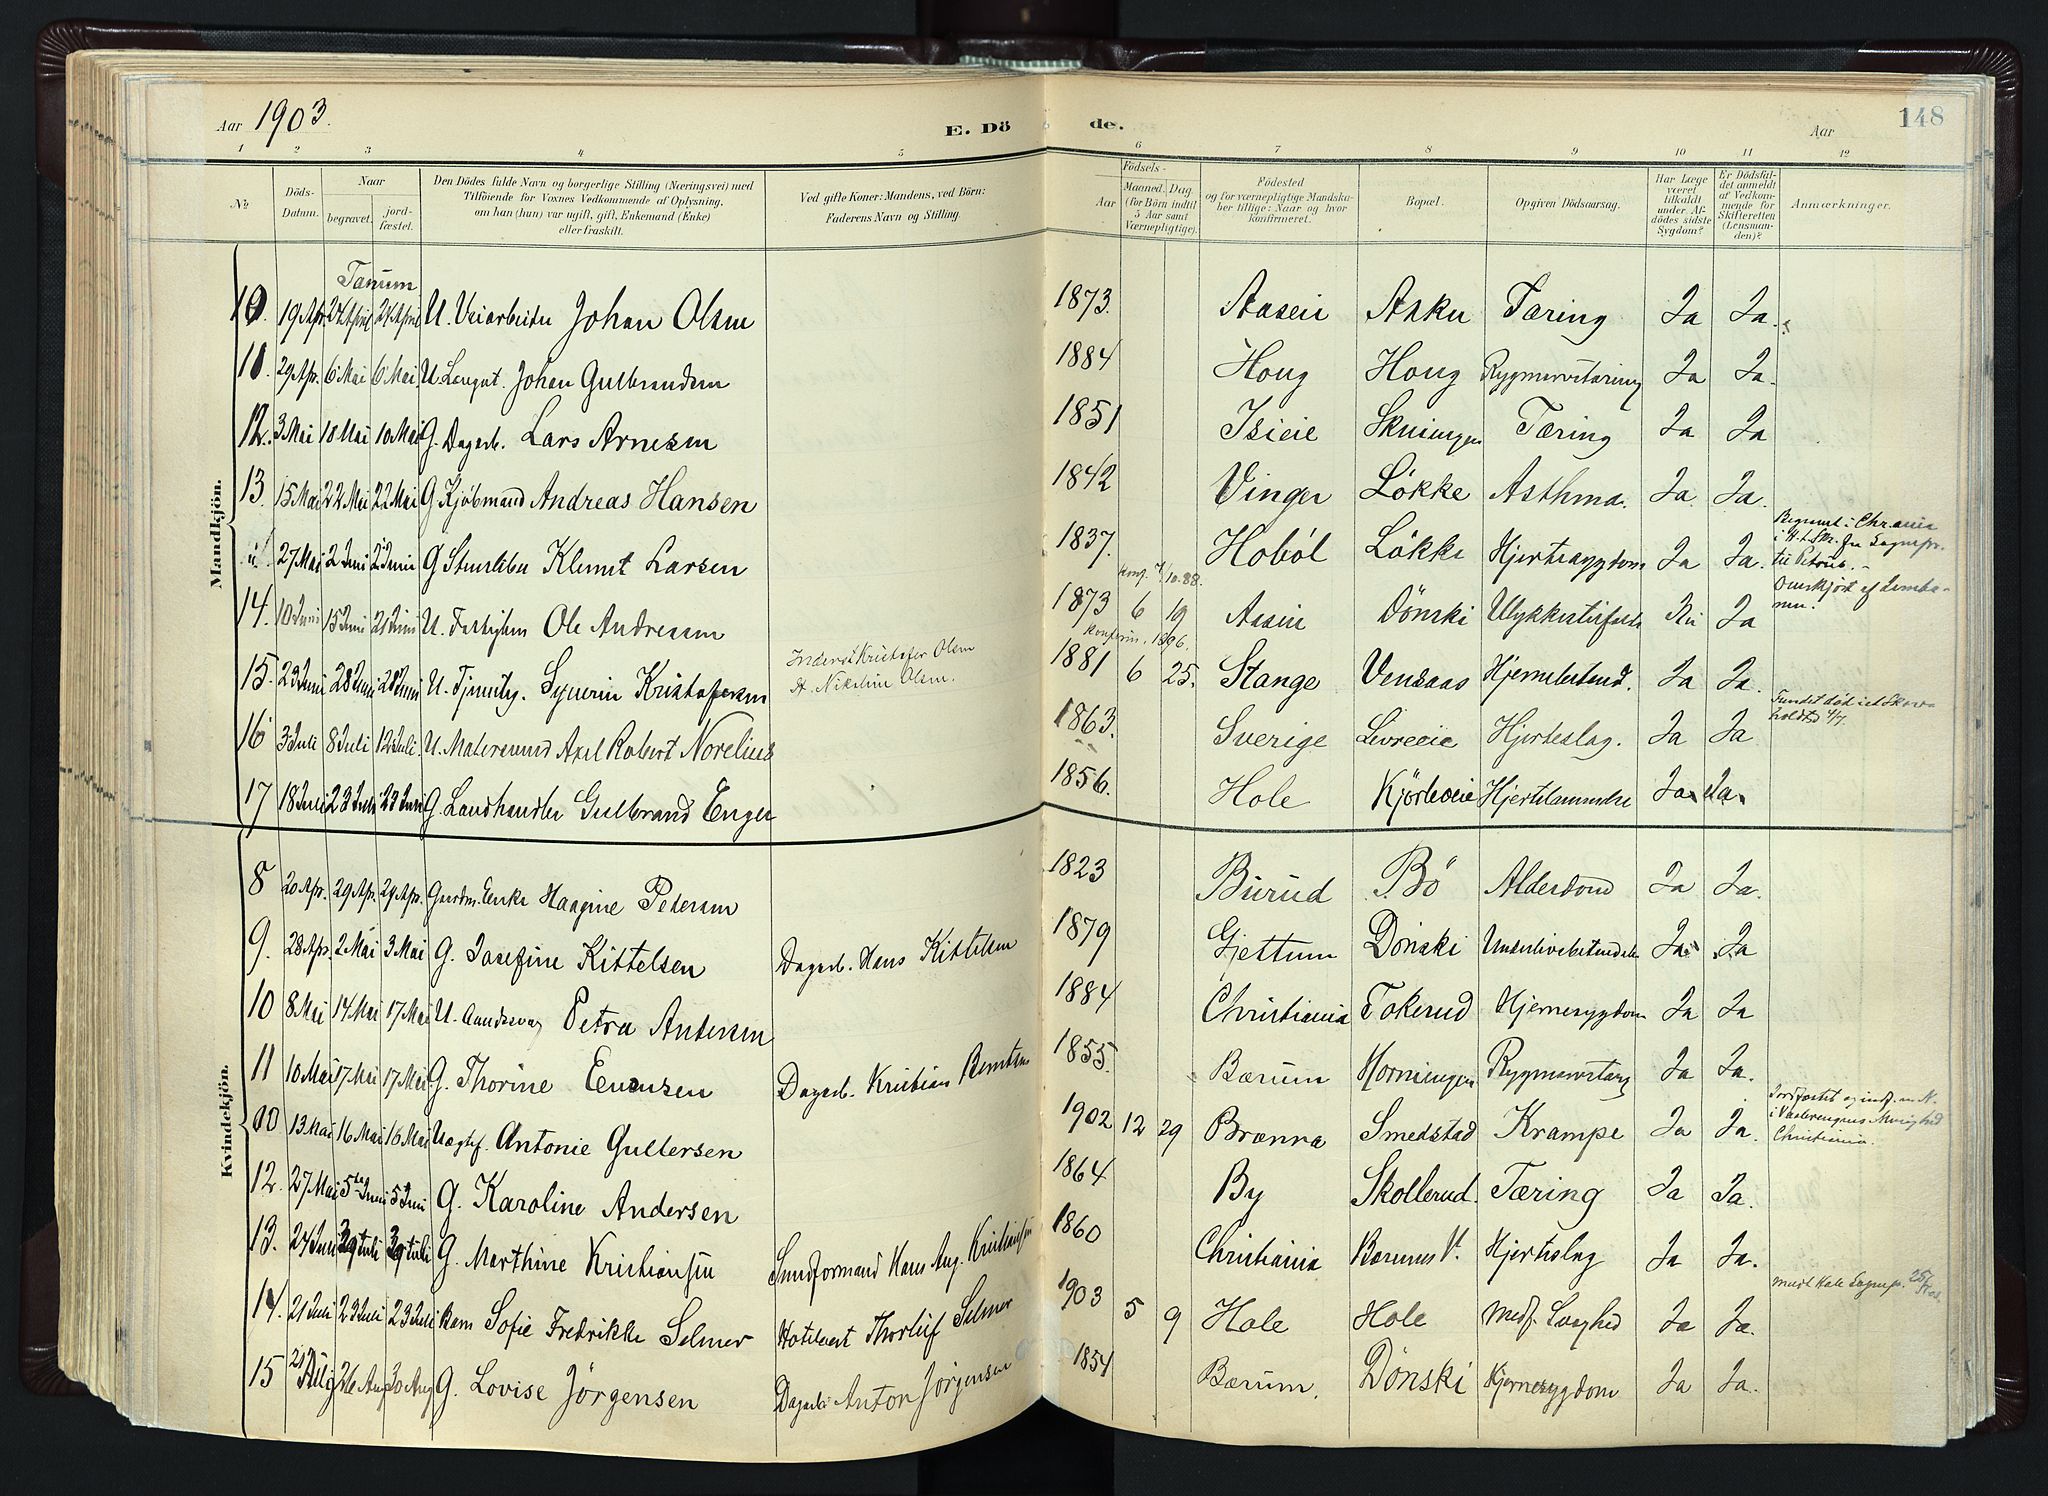 Aar 1903. E. Dö de. Aar 148
1 2 3 4 5 6 7 8 9 10 11 12
№ Döds-Datum. Naar begravet. jord-fæstet. Den Dödes fulde Navn og borgerlige Stilling (Næringsvei) med Tilföiende for Voxnes Vedkommende af Oplysning, om han (hun) var ugift, gift, Enkemand (Enke) eller fraskilt. Ved gifte Koner: Mandens, ved Börn: Faderens Navn og Stilling. Födsels- Aar Maaned. Dag. (for Börn indtil 5 Aar samt Værnepligtige). Födested og for værnepligtige Mandska-ber tillige: Naar og hvor konfirmeret. Bopæl. Opgiven Dödsaarsag. Har Læge været tilkaldt under Af-dödes sidste Sygdom? Er Dödsfal-det anmeldt af Vedkom-mende for Skifteretten (Lensman-den)? Anmærkninger.
Mandkjön.
Tanum
10. 19 Apr. 24 April 24 April U. Veiarbeider Johan Olsen 1873. Aasen Asker Tæring Ja Ja.
11. 29 Apr. 6 Mai 6 Mai U. Johan Gulbrandsen 1884 Houg Houg Rygmarvstæring Ja Ja.
12. 3 Mai 10 Mai 10 Mai G. Dagarb. Lars Arnesen 1851 Isieie Skuiengen Tæring Ja Ja
13. 15 Mai 22 Mai 22 Mai G. Kjøbmand Andreas Hansen 1842 Vinger Løkke Asthma. Ja Ja.
27 Mai 2 Juni 2 Juni G. Klemet Larsen 1837. Hobøl Løkke Hjertesygdom Ja Ja.
14. 10 Juni 15 Juni 21 Juni U. Ole Andresen 1873 6 19 Konf. 7/10.88. Aasen Dønski Ulykkestilfælde Nei Ja
15. 23 Juni 28 Juni 28 Juni U. Syverin Kristofersen Inderst Kristofer Olsen 1881 6 25. Konfirm. 1896. Stange Vensaas Hjernebetænd. Ja Ja.
16 3 Juli 8 Juli 12 Juli. U. Malersvend Axel Robert Norelius 1863. Sverige Levreeie Hjerteslag. Ja Ja
17 18 Juli 23 Juli 23 Juli G. Landhandler Gulbrand Enger 1856. Hole Kjørboeie Hjertelammelse Ja. Ja.
Kvindekjön.
8 20 Apr. 29 Apr. 29 Apr. Gaardm. Enke Haagine Petersen 1823 Burud Bö Alderdom Ja Ja.
9. 28 Apr. 2 Mai 3 Mai G. Josefine Kittelsen Dagarb. Hans Kittelsen 1879 Gjettum Dönski Underlivsbetændelse Ja Ja
10 8 Mai 14 Mai 17 Mai U. Petra Andersen 1884 Christiania Tokerud Hjernesygdom Ja Ja
11 10 Mai 17 Mai 17 Mai G. Thorine Evensen Dagarb. Kristian Berntsen 1855. Bærum Horniengen Rygmarvstæring Ja Ja.
10 13 Mai 16 Mai 16 Mai Uægtef. Antonie Gultersen 1902 12 29 Brænna Smedstad Krampe Ja Ja. Jordfæstet og indf. Christiania.
12. 27 Mai 5te Juni 5 Juni G. Karoline Andersen 1864 By Skollerud. Tæring Ja Ja.
13. 24 Juni G. Marthine Kristiansen Hans Aug. Kristiansen 1860 Christiania Bærums V. Hjerteslag Ja Ja.
14. 21 Juli 23 Juli 23 Juli Barn Sofie Fredrikke Selmer Hotelvert Thorleif Selmer 1903 5 9 Hole Hole Medf. Svaghed Ja Ja.
15 26 Aug 30 Aug G. Lovise Jörgensen Dagarb. Anton Jörgensen 1854 Bærum. Dönski Hjernesygdom Ja Ja.